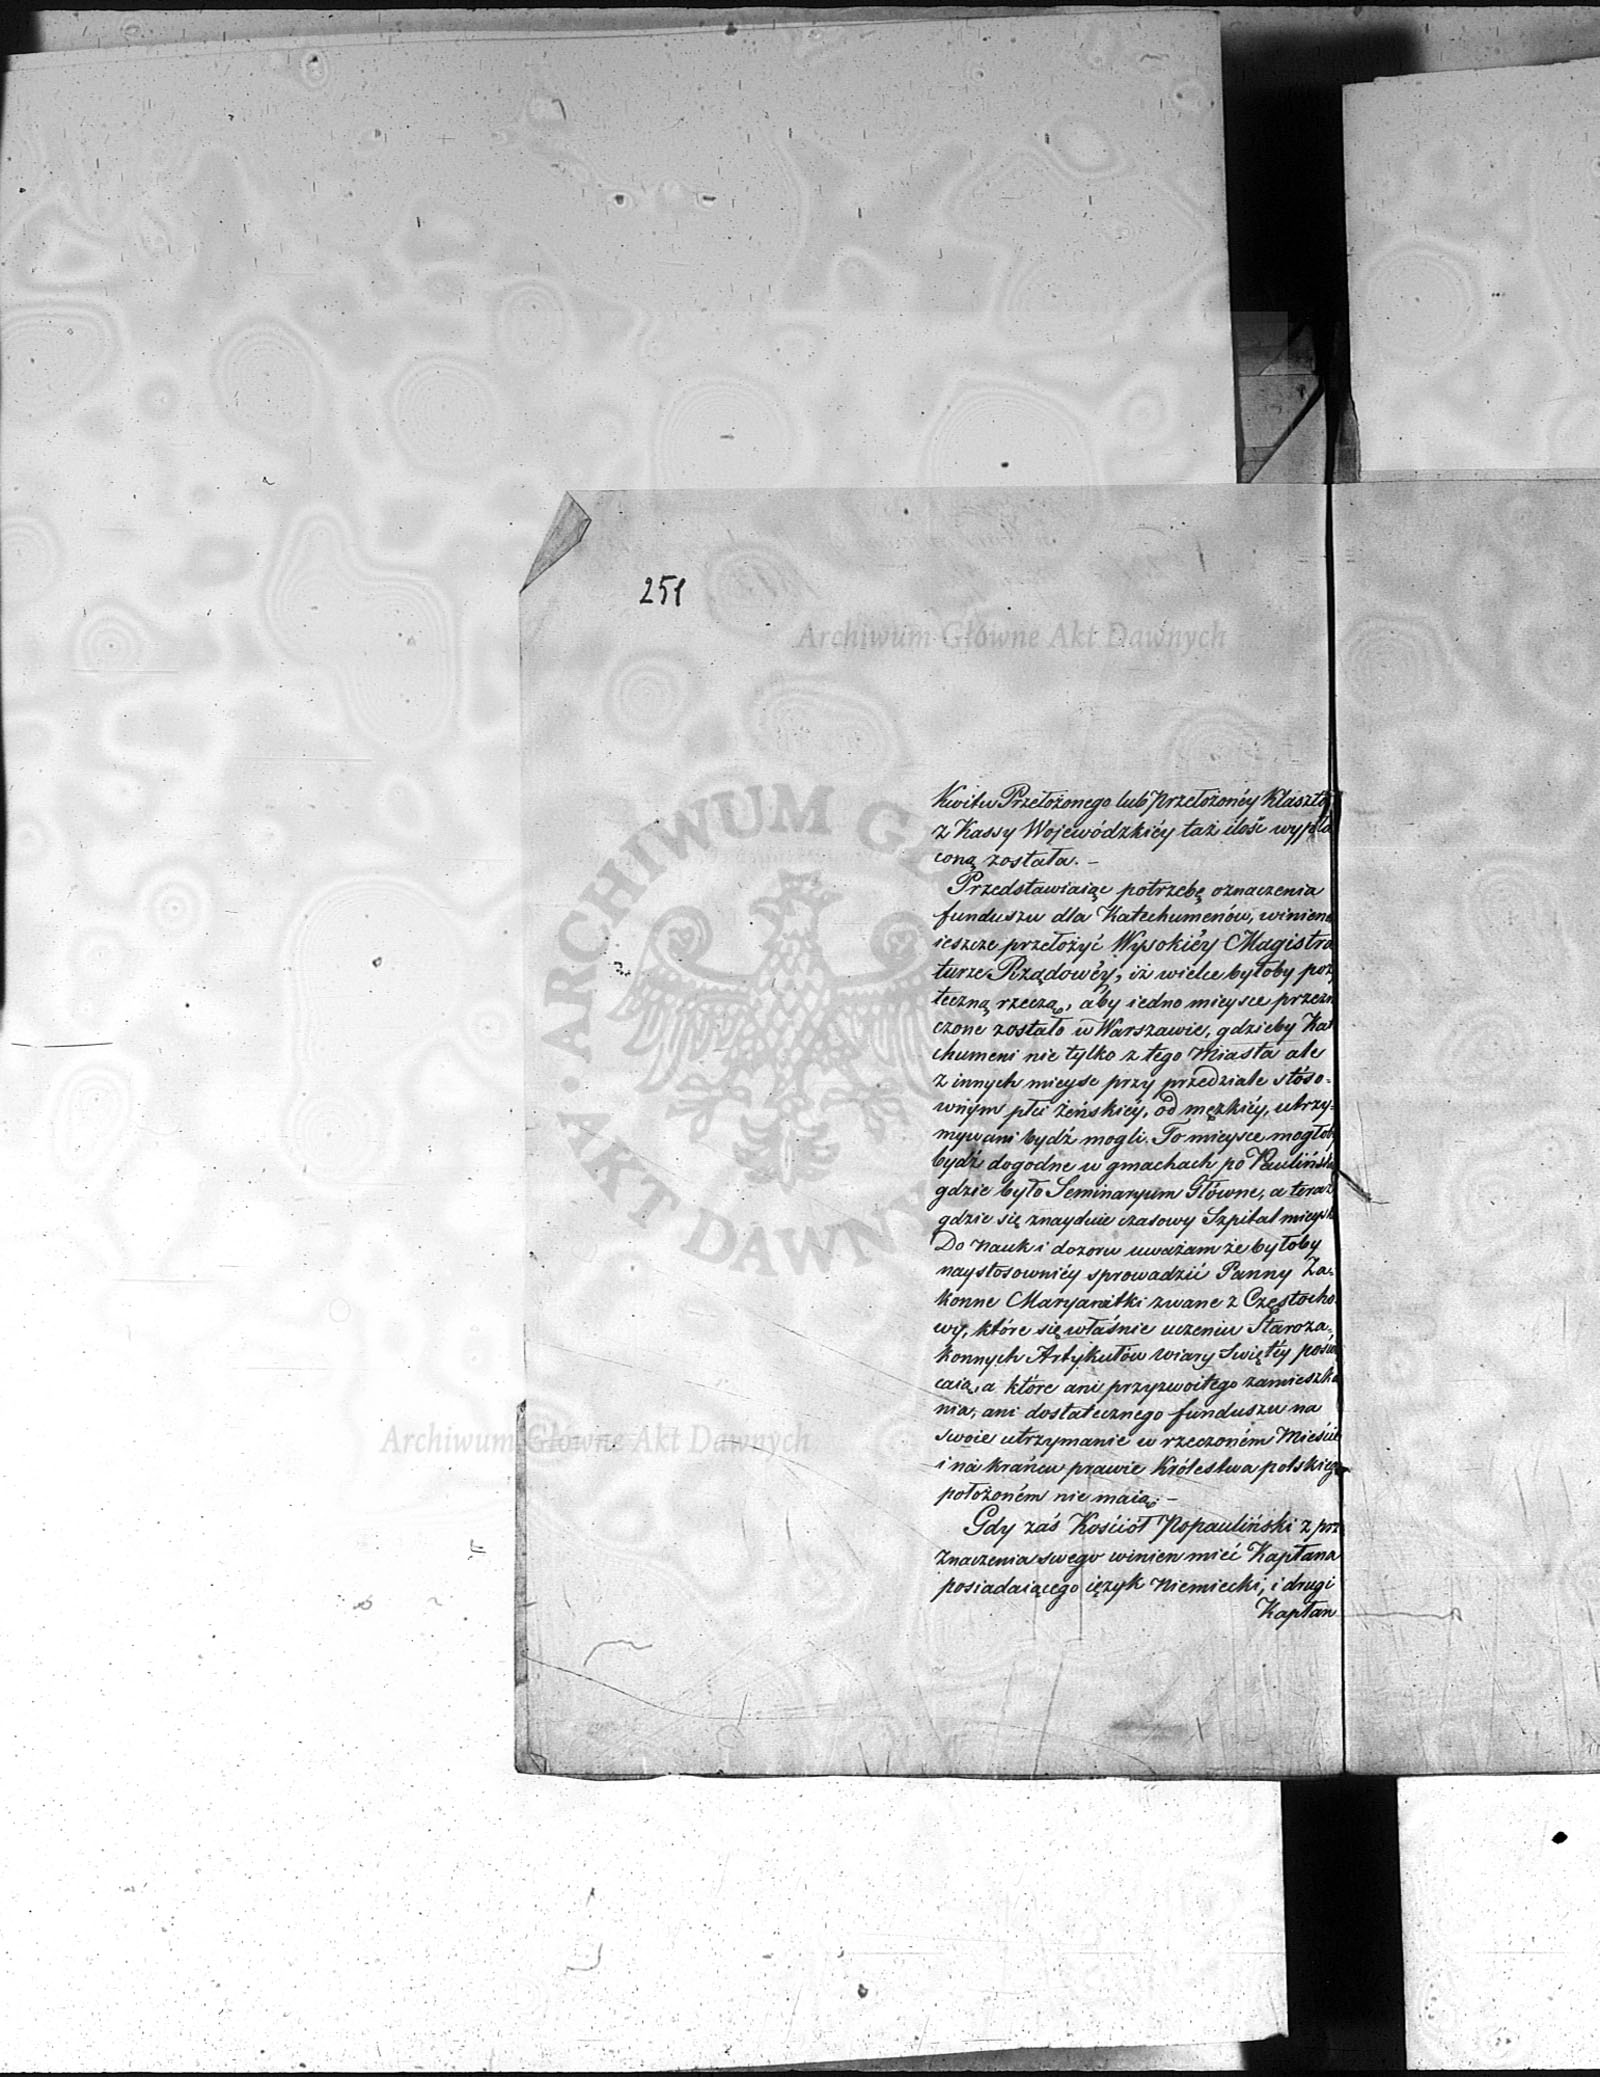 251
Archiwum Główne Akt Dawnych
Kwitu Przełożonego lub Przełożonéy Klaszto
z Kassy Wojewódzkiéy taż ilość wypła
coną została. –
Przedstawiaiąc potrzebę oznaczenia
funduszu dla Katechumenów, winiene
ieszcze przełożyć Wysokiéy Magistra
turze Rządowéy, iż wielce byłoby poż
teczną rzeczą, aby iedno mieysce przezn
czone zostało w Warszawie, gdzieby Kat
chumeni nie tylko z tego Miasta ale
z innych mieysc przy przedziale stóso-
wnym płci żeńskiéy, od męzkiéy, utrzy-
mywani bydź mogli. To mieysce mogłob
bydź dogodne w gmachach po Paulińsk
gdzie było Seminaryum Główne, a teraz
gdzie się znayduie czasowy Szpital mieysk
Do nauk i dozoru uważam że byłoby
naystosowniéy sprowadzić Panny Za-
konne Maryawitki zwane z Częstocho-
wy, które się właśnie uczeniu Staroza-
konnych Artykułów wiary Swiętéy poświ
caią, a które ani przyzwoitego zamieszka
nia, ani dostatecznego funduszu na
swoie utrzymanie w rzeczoném Mieście
i na krańcu prawie Królestwa polskieg
położoném nie maią. –
Gdy zaś Kościół Popauliński z prze
znaczenia swego winien mieć Kapłana
posiadaiącego ięzyk Niemiecki, i drugi
Kapłan
ARCHIWUM GŁ
AKT DAWNY
Archiwum Główne Akt Dawnych